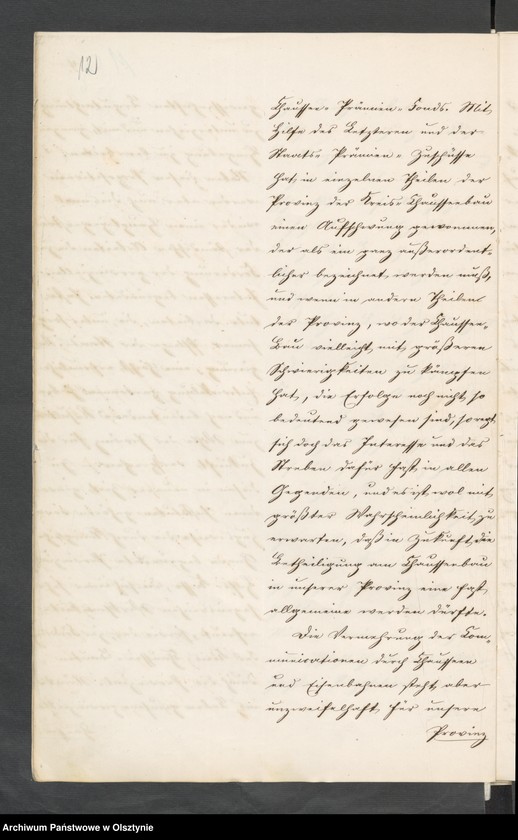 12
Chaussee-Prämien-Fonds. Mit
Hilfe des Letzteren und der
Staats-Prämien-Zuschüsse
hat in einzelnen Theilen der
Provinz der Kreis-Chausseebau
einen Aufschwung genommen,
der als ein ganz außerordent-
licher bezeichnet werden muß,
und wenn in andern Theilen
der Provinz, wo der Chaussee-
Bau vielleicht mit größeren
Schwierigkeiten zu kämpfen
hat, die Erfolge noch nicht so
bedeutend gewesen sind, so regt
sich doch das Interesse und das
Streben dafür fast in allen
Gegenden, und es ist wol mit
größter Wahrscheinlichkeit zu
erwarten, daß in Zukunft die
Betheiligung am Chausseebau
in unserer Provinz eine fast
allgemeine werden dürfte.
Die Vermehrung der Com-
municationen durch Chausseen
und Eisenbahnen steht aber
unzweifelhaft für unsere
Provinz
Archiwum Państwowe w Olsztynie